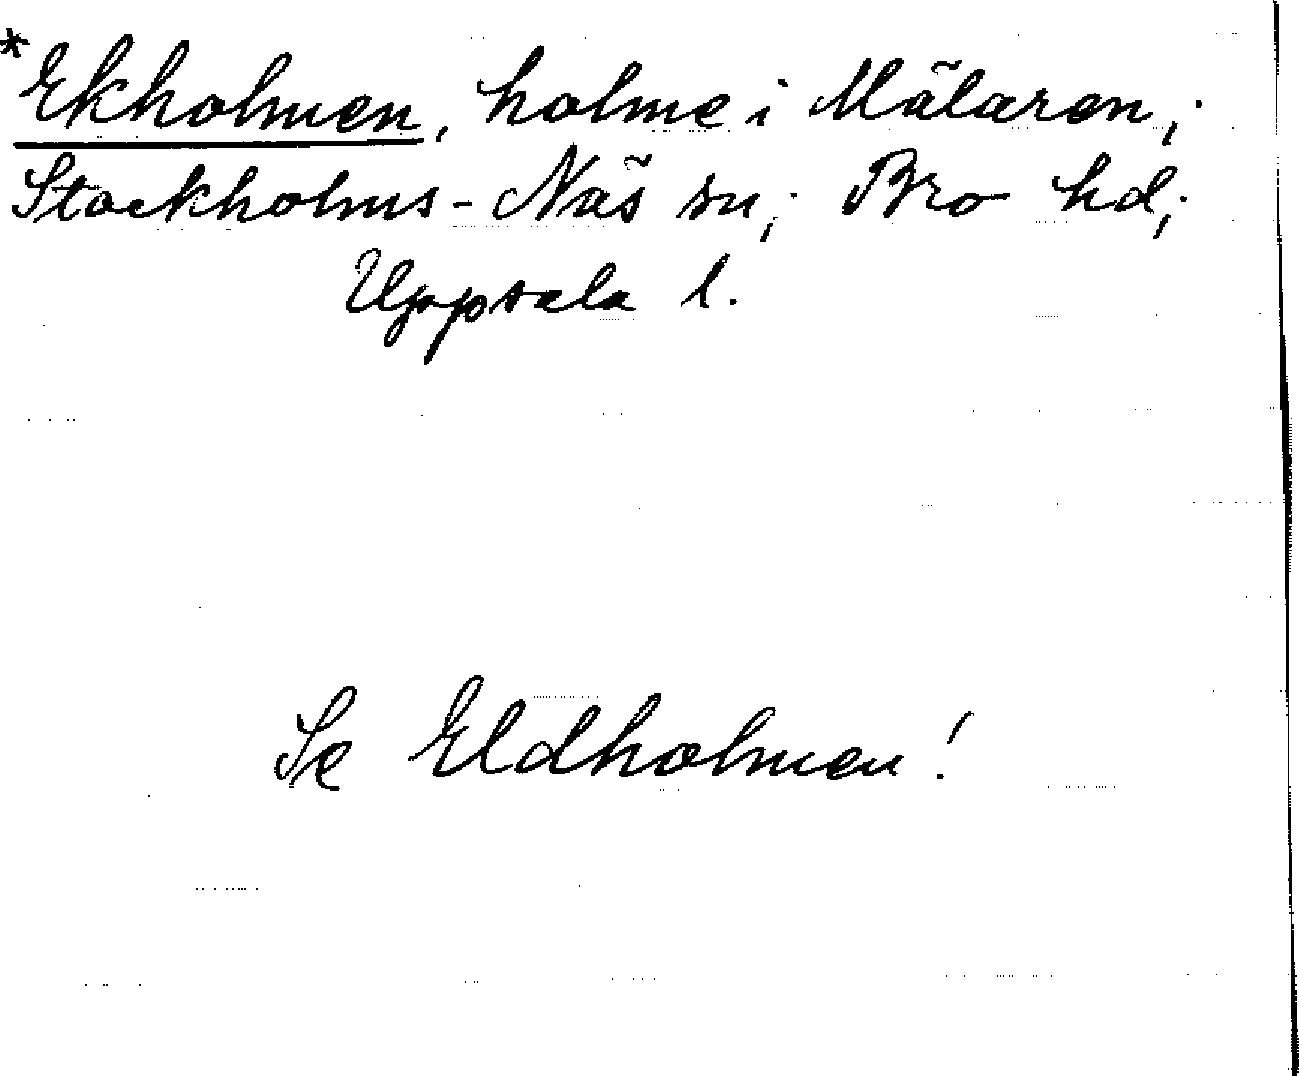 *Ekholmen, holme i Mälaren;
Stockholms-Näs sn; Bro hd;
Uppsala l.
Se Eldholmen!